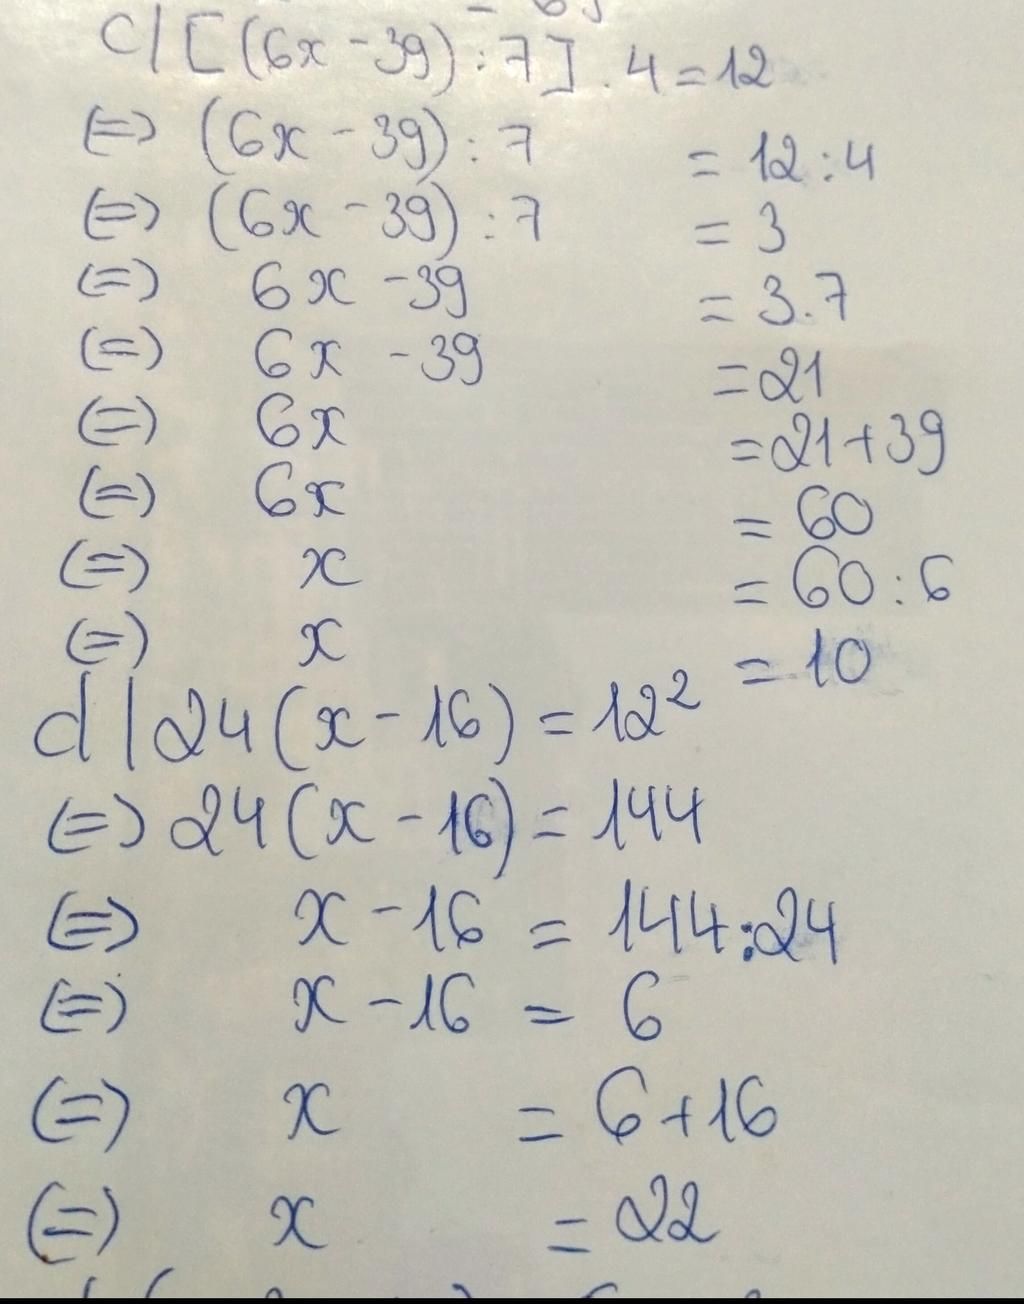 c/ [(6x - 39) : 7] . 4 = 12
(=) (6x - 39) : 7 = 12 : 4
(=) (6x - 39) : 7 = 3
(=) 6x - 39 = 3.7
(=) 6x - 39 = 21
(=) 6x = 21 + 39
(=) 6x = 60
(=) x = 60 : 6
(=) x = 10
d/ 24 (x - 16) = 12²
(=) 24 (x - 16) = 144
(=) x - 16 = 144 : 24
(=) x - 16 = 6
(=) x = 6 + 16
(=) x = 22